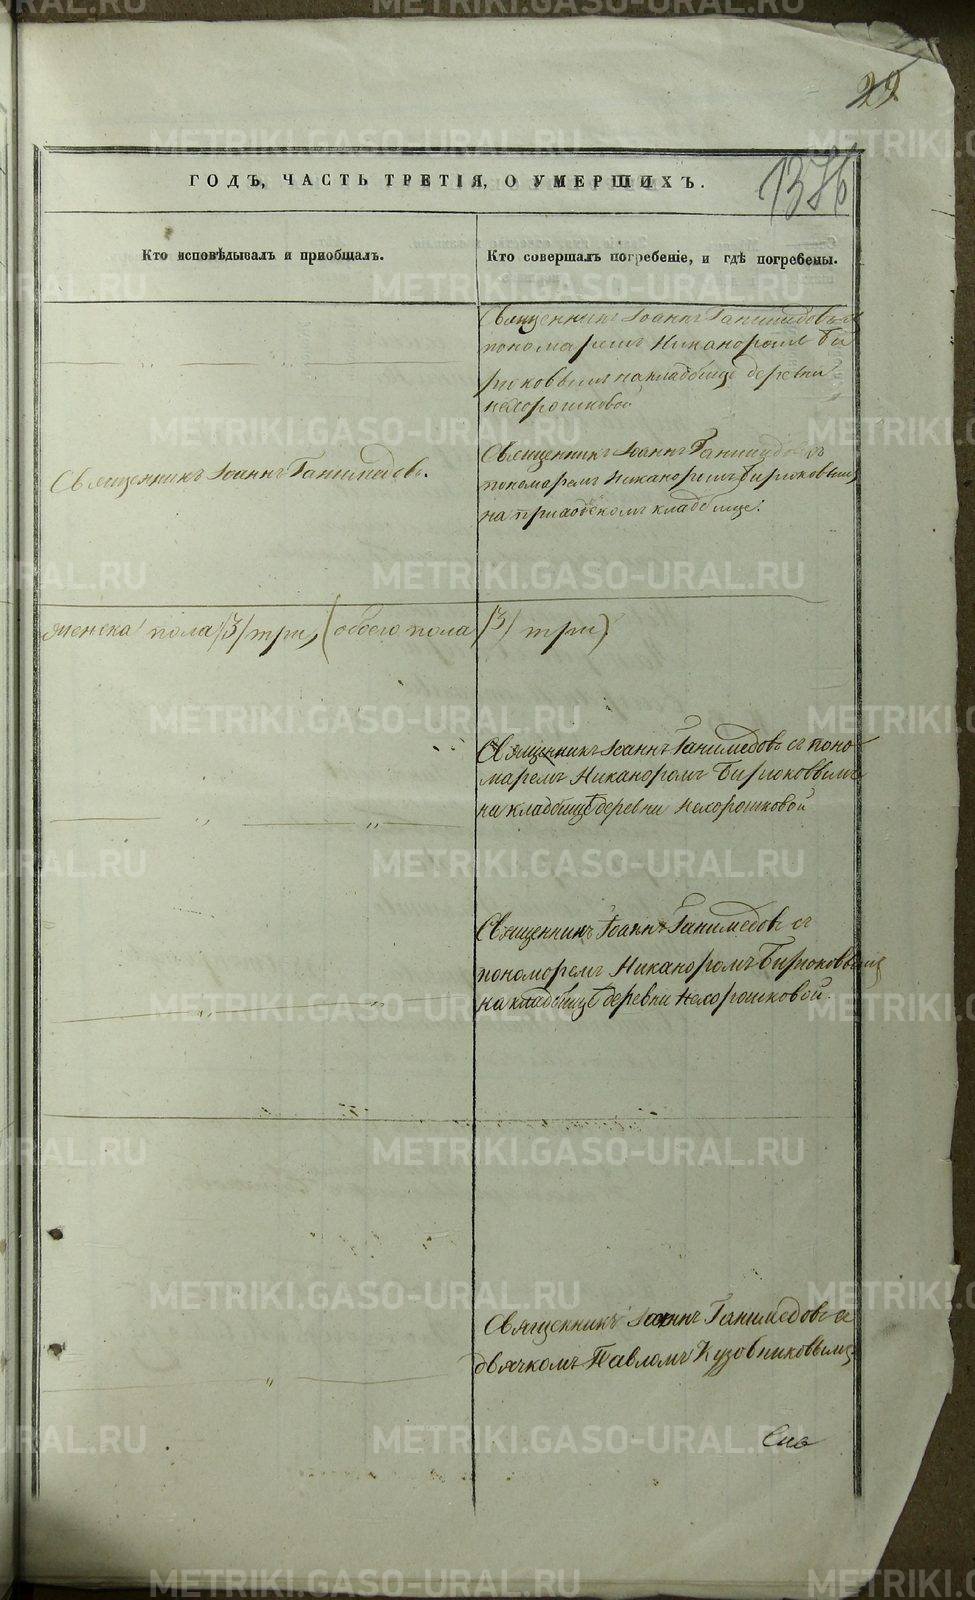 22
137б
ГОДЪ, ЧАСТЬ ТРЕТІЯ, О УМЕРШИХЪ.
Кто исповѣдывалъ и приобщалъ.
Кто совершалъ погребеніе, и гдѣ погребены.
Священникъ Іоаннъ Ганимедовъ съ
пономаремъ Никаноромъ Би
рюковымъ на кладбищѣ деревни
Нехорошковой
Священникъ Іоаннъ Ганимедовъ.
Священникъ Іоаннъ Ганимедовъ съ
пономаремъ Никаноромъ Бирюковымъ
на приходскомъ кладбищѣ.
женска пола /3/ три, (обоего пола /3/ три).
Священникъ Іоаннъ Ганимедовъ съ поно-
маремъ Никаноромъ Бирюковымъ
на кладбищѣ деревни Нехорошковой
Священникъ Іоаннъ Ганимедовъ съ
пономоремъ Никаноромъ Бирюковымъ
на кладбищѣ деревни Нехорошковой.
Священникъ Іоаннъ Ганимедовъ съ
дьячкомъ Павломъ Кузовниковымъ
METRIKI.GASO-URAL.RU